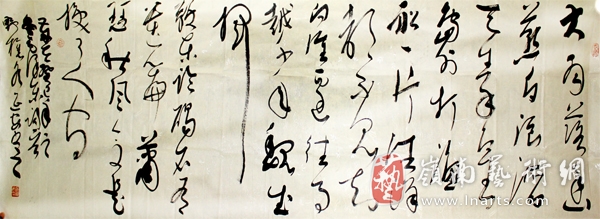 大雨落幽
燕白浪滔
天秦皇
岛外打鱼
船一片汪洋
都不见知
向谁边往事
越千年魏武
挥
鞭东临碣石有
遗篇萧
瑟秋风今又是
换了人间
艺
嶺南藝術網
www.lnarts.com